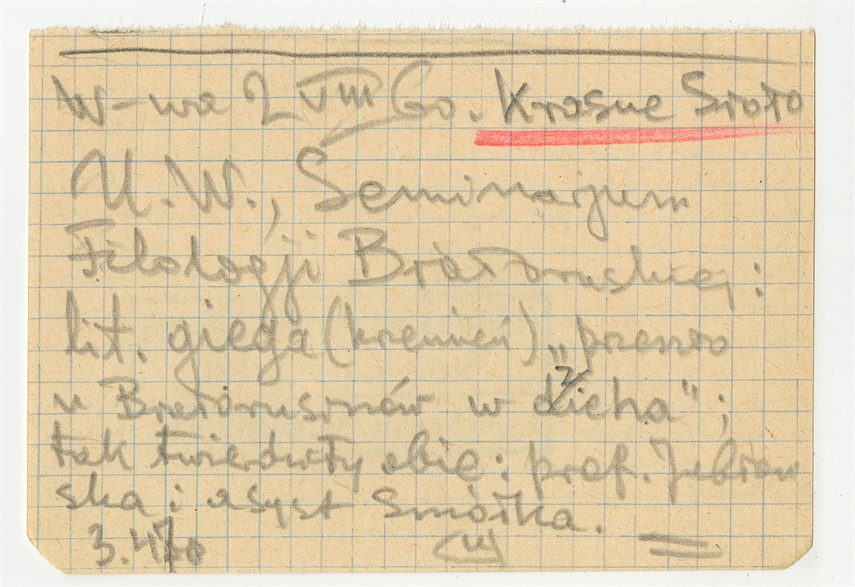 W-wa 2 VIII 60. Krasne Sioło
U. W., Seminarjum
Filologji Białoruskiej:
lit. giega (krzemień) „przeszło
u Białorusinów w dzieha";
tak twierdziły obie: prof.
ska i asyst Smółka.